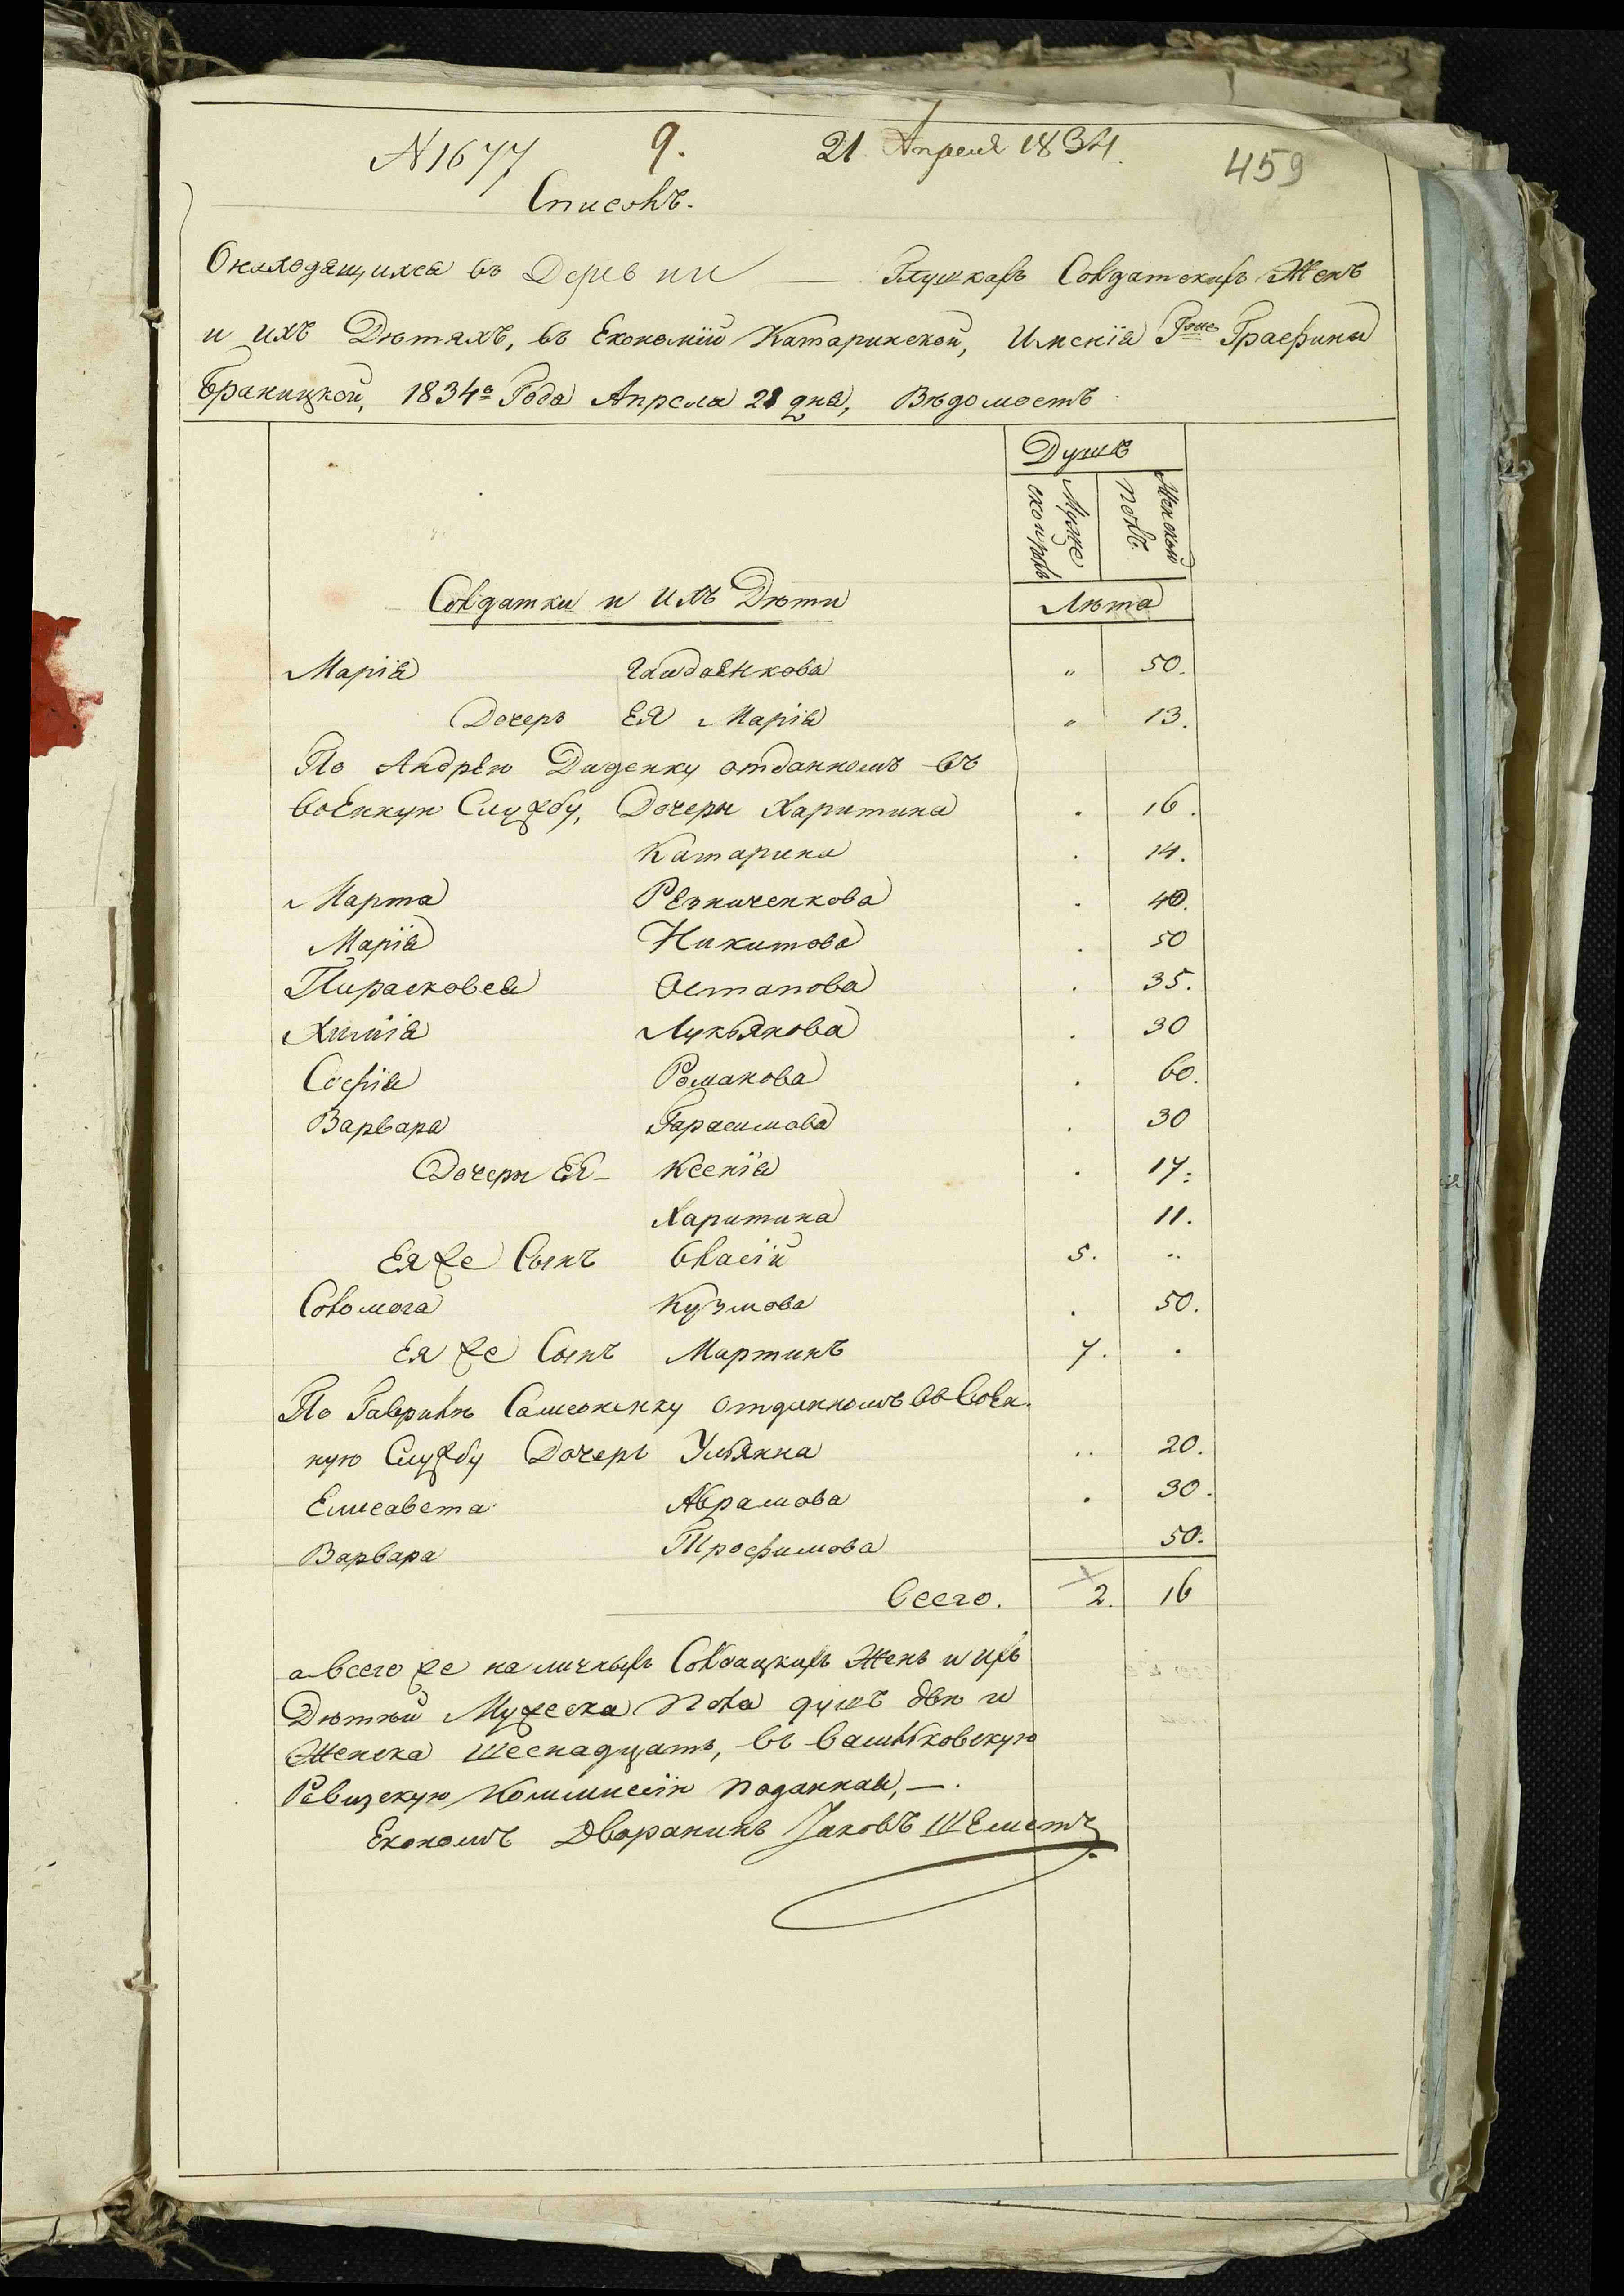 N 1677 9. 21 Апреля 1834. 459
Списокъ.
О находящихся въ Деревни — Глушкахъ Солдатскихъ Женъ
и ихъ Дѣтяхъ, въ Екокомїи Катаринской, Имєнїя Графини
Браницкой, 1834го Года Апреля 21 дня, Вѣдомость
Душъ
Мужескихъ
Женской полъ.
Солдатки и ихъ Дѣти Лѣта
Марїя Гайдаєнкова „ 50.
Дочерь Ея Марїя „ 13.
По Андрею Диденку отданномъ въ
военную Службу, Дочери Харитина . 16.
Катарина . 14.
Марта Резниченкова . 40.
Марїя Никитова . 50
Парасковея Остапова . 35.
Химїя Лукьянова . 30
Софїя Романова . 60.
Варвара Гарасимова . 30
Дочери Ея – Ксенїя . 17.
Харитина 11.
Ея же Сынъ Власїй 5. ..
Соломога Кузмова . 50.
Ея же Сынъ Мартинъ 7. .
По Гаврилѣ Самсоненку отданномъ въ воен-
ную Службу Дочерь Ульянна .. 20.
Елисавета Абрамова . 30.
Варвара Трофимова 50.
Всего. 2. 16
а всего же наличныхъ Солдацкихъ Женъ и ихъ
Дѣтѣй Мужеска пола душъ двѣ и
Женска шеснадцать, въ Васильковскую
Ревизскую Коммисїю поданная, —.
Економъ Дворанинъ Іаковъ Шеметъ